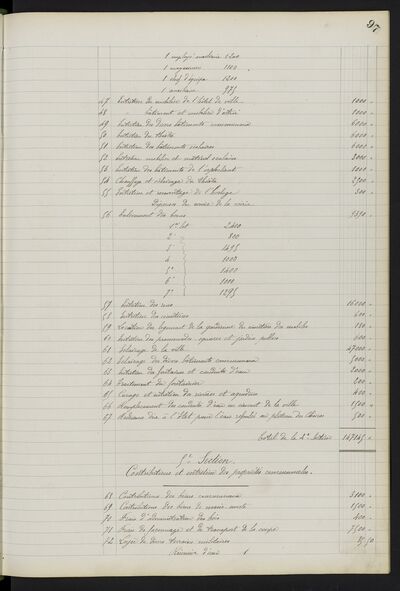 97
1 employé auxiliaire 1200
1 magasinier 1100
1 chef d'équipe 1200
1 9
47 Entretien du mobilier de l'hôtel de ville 1000 "
48 " bâtiment et mobilier d' 1000 "
49 Entretien des divers bâtiments communaux 6000 "
50 Entretien du théâtre 6000 "
51 Entretien des bâtiments scolaires 6000 "
52 Entretien mobilier et matériel scolaire 3000 "
53 Entretien des bâtiments de l' 1000 "
54 Chauffage et éclairage du théâtre 2500 "
55 Entretien et remontage de l'horloge 300 "
Dépenses du service de la voirie
56 Enlèvement des boues
1er lot 2400
2e 800
3e 1495
4 1000
5e 1400
6 1000
7e 1295
57 Entretien des rues 16000 "
58 Entretien des cimetières 600 "
59 Location du logement de la gardienne du cimetière 180 "
60 Entretien des promenades, squares et jardins publics 600 "
61 Eclairage de la ville 47000 "
62 Eclairage des divers bâtiments communaux 5000 "
63 Entretien des fontaines et conduite d'eau 2000 "
64 Traitement du fontainier 200 "
65 Curage et entretien des rivières et aqueducs 400 "
66 Remplacement des conduites d'eau en amont de la ville 1500 "
67 Redevance due à l'Etat pour l'eau refoulée au plateau des 500 "
Total de la 4e Section
5e Section.
Contributions et entretien des propriétés communales.
68 Contributions des biens communaux 3100 "
69 Contributions des biens de 3500 "
70 Frais d'administration des bois 400 "
71 Frais de façonnage et de transport de la coupe 7500 "
72 Loyer de divers terrains militaires 50
1